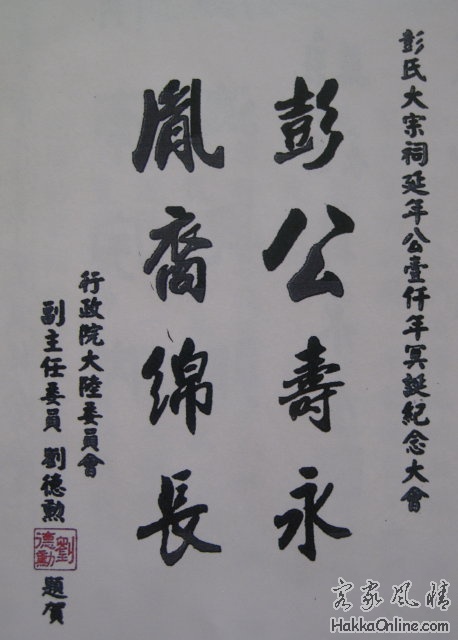 彭氏大宗祠延年公壹仟年冥誕紀念大會
彭公壽永
胤裔綿長
行政院大陸委員會
副主任委員 劉德勲 題賀
劉德勲
客家風情
HakkaOnline.com